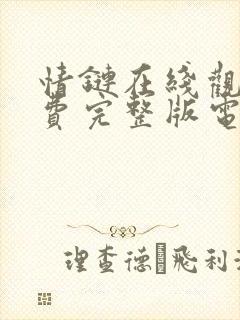 情鏈在綫觀
費完整版電
理查德 飛利